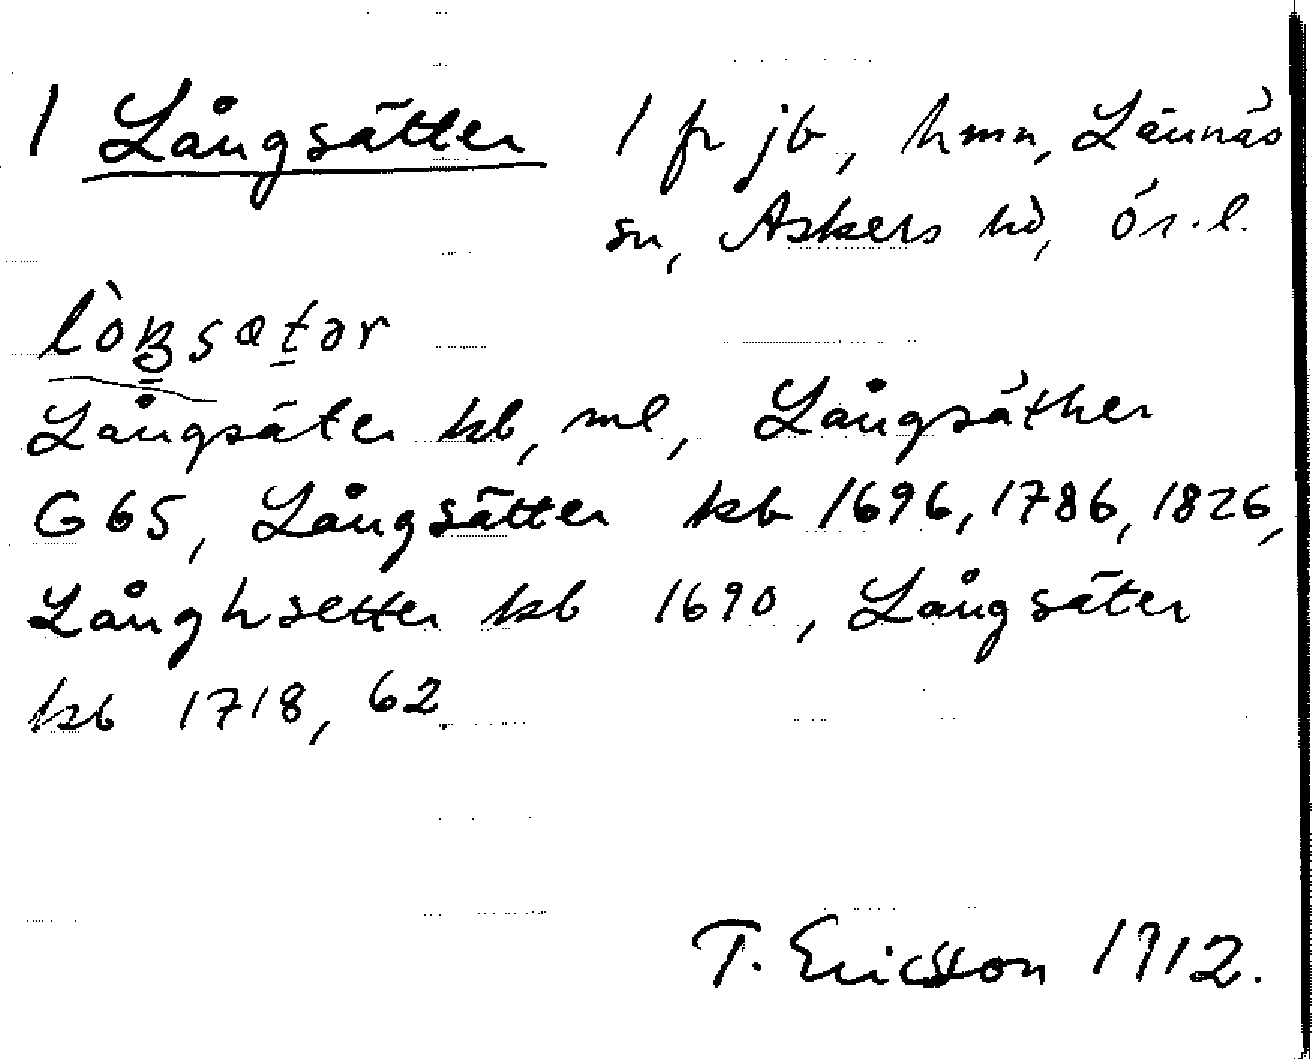 1 Långsätter 1 fr jb, hmn, Lännäs
sn, Askers hd, ör. l.
Långsäter kb, ml, Långsäther
G65, Långsätter kb 1696, 1786, 1826,
Långhsetter kb 1690, Långsäter
kb 1718, 62.
T. Ericsson 1912.